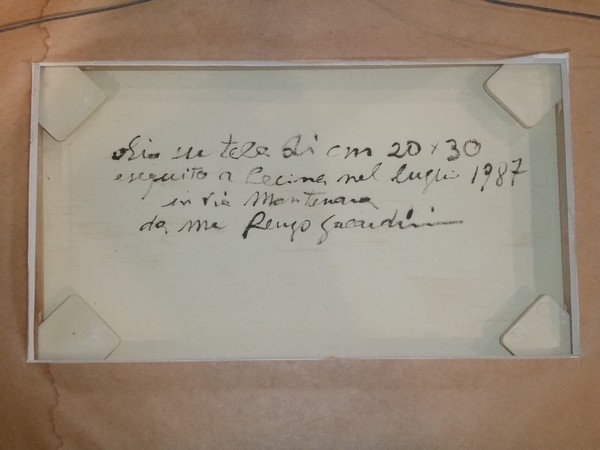 olio su tela di cm 20x30
eseguito a Cecina nel luglio 1987
in via Montenara
da me Renzo